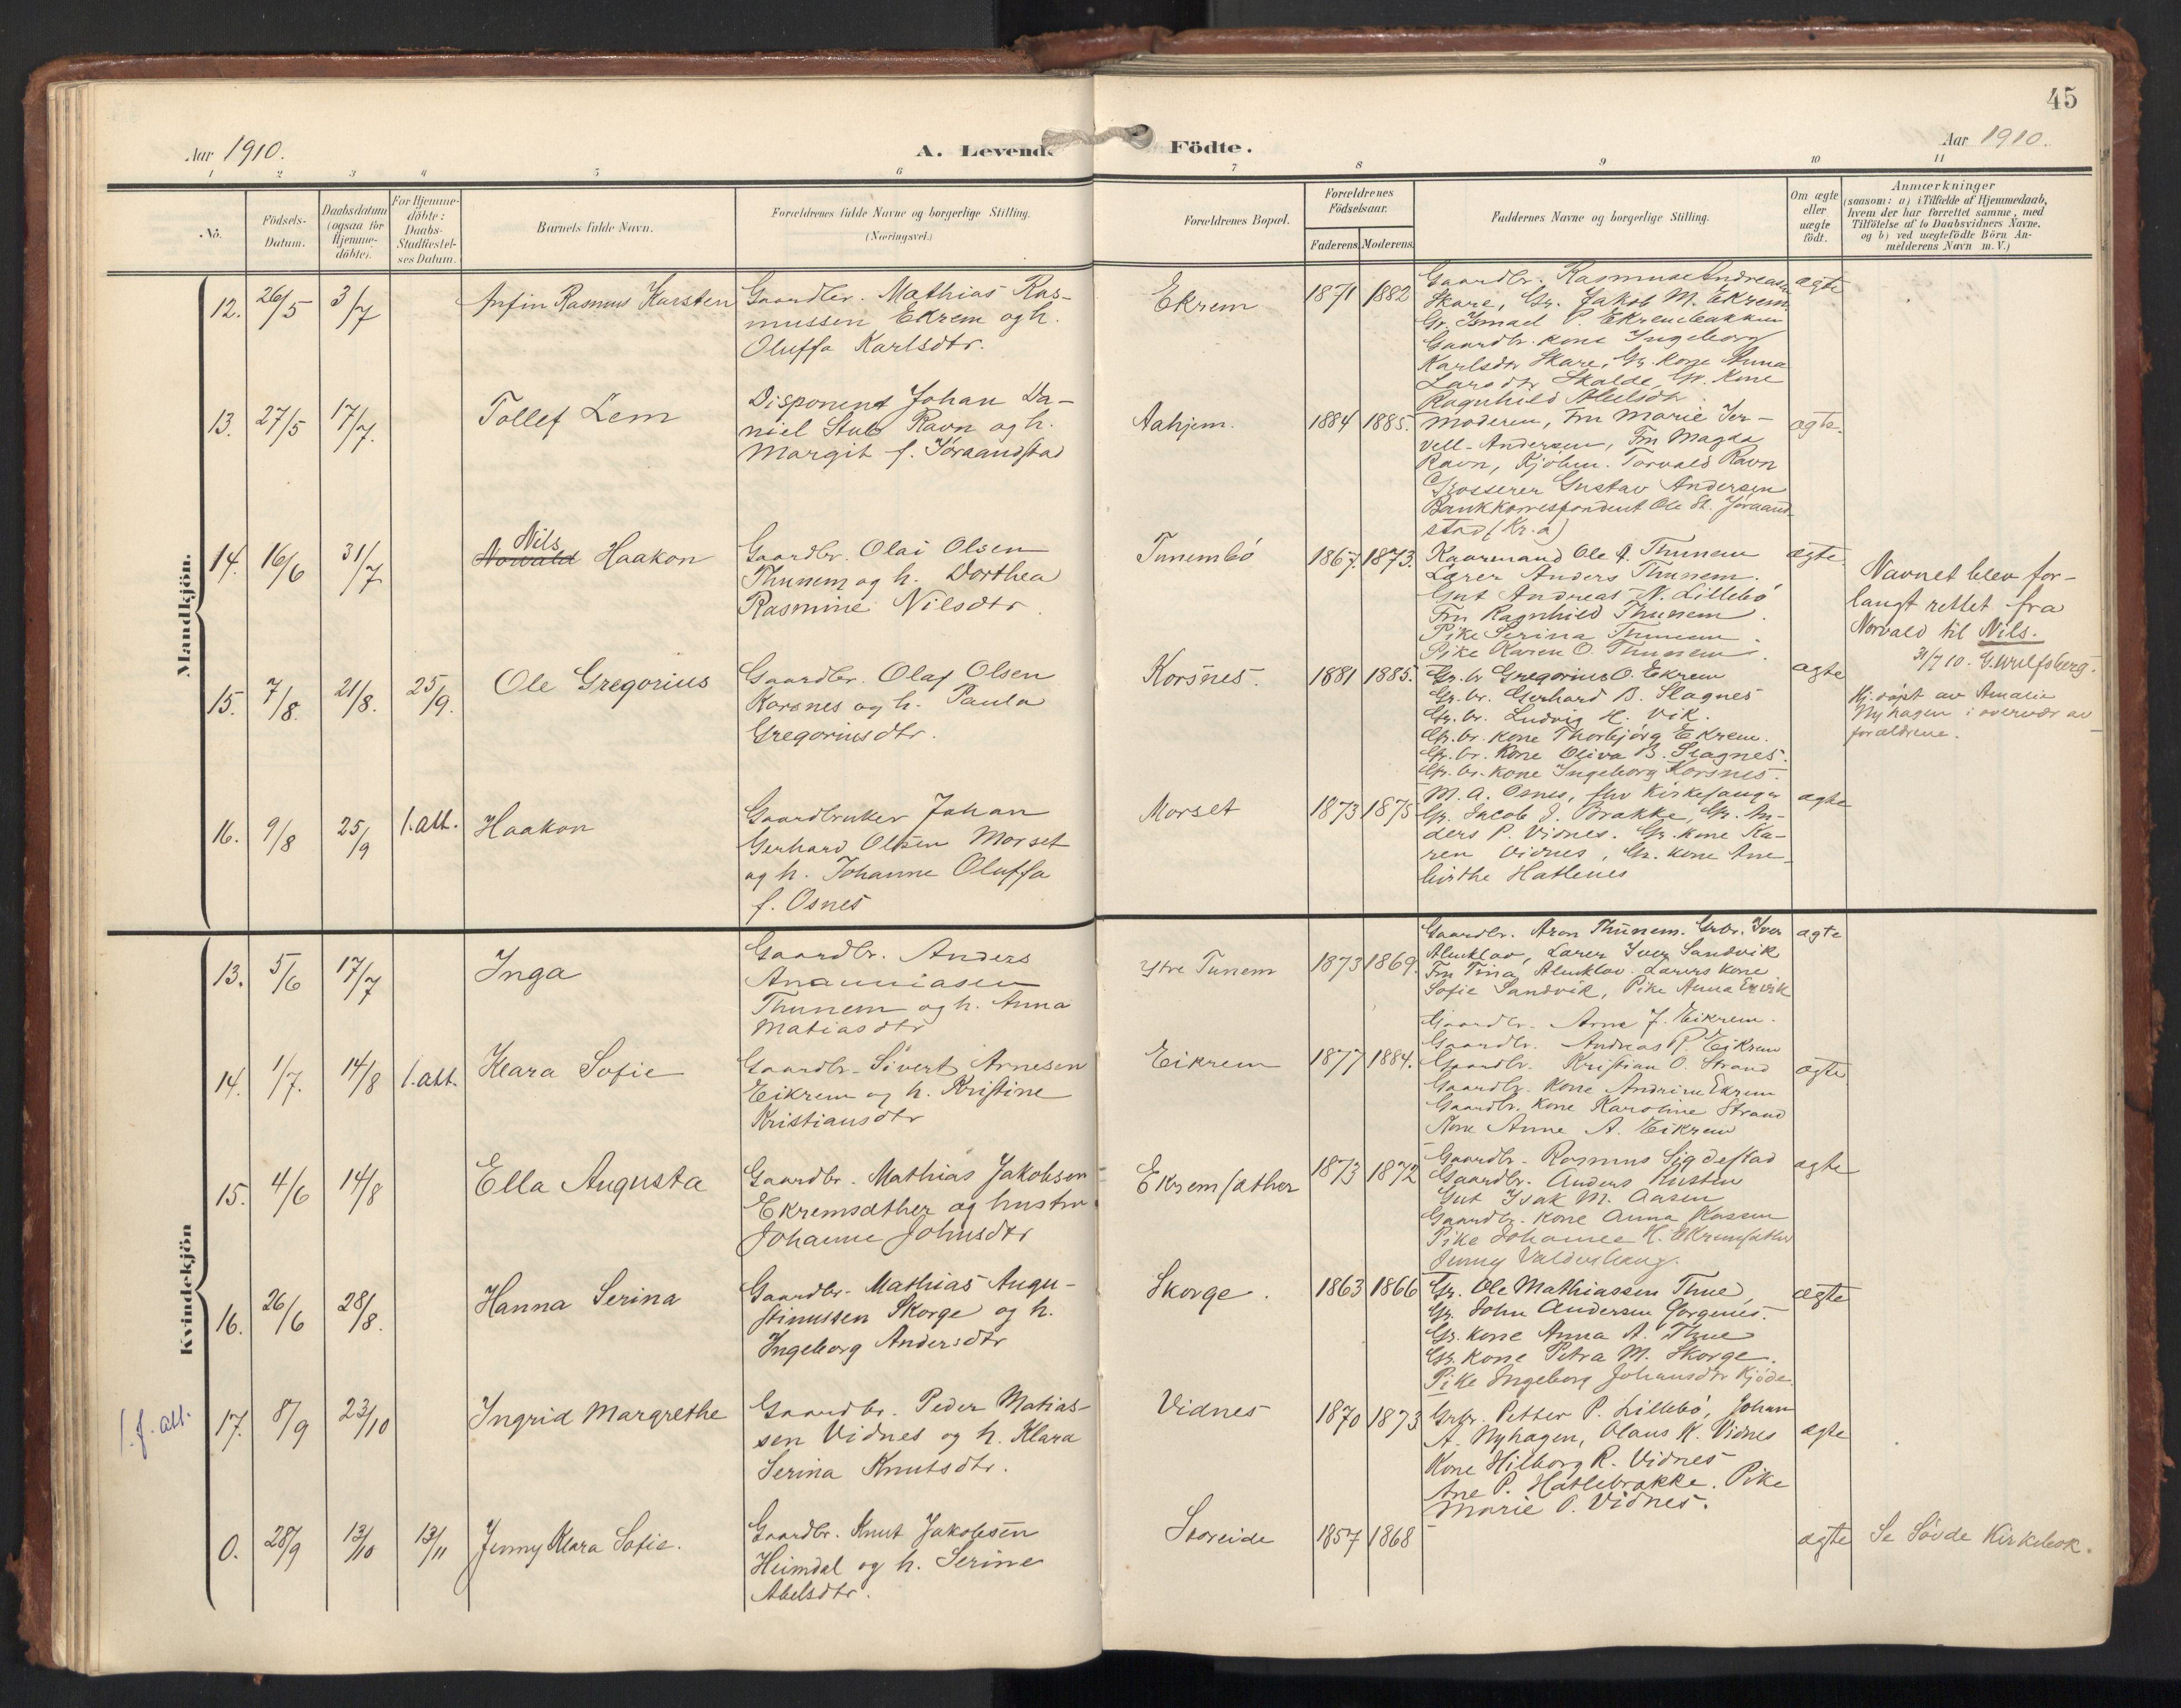 45
Aar 1910.
A. Levende
Födte.
Aar 1910.
1 2 3 4 5 6 7 8 9 10 11
No.
Födsels-
Datum.
Daabsdatum
(ogsaa for
Hjemme-
döbte).
For Hjemme-
döbte:
Daabs-
Stadfæstel-
ses Datum.
Barnets fulde Navn.
Forældrenes fulde Navne og borgerlige Stilling.
(Næringsvei.)
Forældrenes Bopæl.
Forældrenes
Födselsaar.
Faderens. Moderens.
Faddernes Navne og borgerlige Stilling.
Om ægte
eller
uægte
födt.
Anmærkninger
(saasom: a) i Tilfælde af Hjemmedaab,
hvem der har forrettet samme, med
Tilföielse af to Daabsvidners Navne,
og b) ved uægtefödte Börn An-
melderens Navn m. V.)
Mandkjön.
12. 26/5 3/7
Arfin Rasmus Karsten
Gaardbr. Mathias Ras-
mussen Ekrem og h.
Oluffa Karlsdtr.
Ekrem
1871 1882
Gaardbr. Rasmus Andreasen
Skare, Gr. Jakob M. Ekrem.
Gr. Ismael P. Ekrembakken
Gaardbr. kone Ingeborg
Karlsdtr Skare, Gr. kone Anna
Larsdtr Skalde, Gr. kone
Ragnhild Abelsdtr.
ægte
13. 27/5 17/7.
Tollef Lem
Disponent Johan Da-
niel Stub Ravn og h.
Margit f. Jöraandstad
Aahjem.
1884 1885.
Moderen, Fru Marie Jer-
vell-Andersen, Fru Magda
Ravn, Kjöbm. Torvald Ravn
Grosserer Gustav Andersen
Bankkorrespondent Ole St. Jöraand-
stad (Kr.a)
ægte.
14. 16/6 31/7
Nils
Norvald Haakon
Gaardbr. Olai Olsen
Thunem og h. Dorthea
Rasmine Nilsdtr.
Tunembö
1867. 1873.
Kaarmand Ole A. Thunem
Lærer Anders Thunem.
Gut Andreas N. Lillebö
Fru Ragnhild Thunem.
Pike Serina Thunem.
Pike Karen O. Thunem.
ægte.
Navnet blev for-
langt rettet fra
Norvald til Nils.
31/7 10. G. Wulfsberg.
15. 7/8. 21/8. 25/9.
Ole Gregorius
Gaardbr. Olaf Olsen
Korsnes og h. Paula
Gregoriusdtr.
Korsnes.
1881 1885.
Gr.br Gregorius O. Ekrem
Gr.br. Gerhard B. Slagnes
Gr.br. Ludvig H. Vik.
Gr.br. kone Thorbjörg Ekrem.
Gr.br. kone Oliva B. Slagnes.
Gr.br. kone Ingeborg Korsnes.
ægte
Hj.döpt av Amalie
Nyhagen i overvær av
forældrene.
16. 9/8 25/9 l. att.
Haakon
Gaardbruker Johan
Gerhard Olsen Morset
og h. Johanne Oluffa
f. Osnes
Morset
1873 1875
M. A. Osnes, fhv Kirkesanger
Gr. Jacob J. Brække, Gr. An-
ders P. Vidnes. Gr. kone Ka-
ren Vidnes, Gr. kone Ane
birthe Hatlenes
ægte
Kvindekjön
13. 5/6 17/7
Inga
Gaardbr. Anders
Ananiasen
Thunem og h. Anna
Matiasdtr
Ytre Tunem
1873 1869.
Gaardbr. Aron Thunem. Grbr. Iver
Almklov, Lærer Iver Sandvik
Fru Tina Almklov. Lærers kone
Sofie Sandvik, Pike Anna Ervik
ægte
14. 1/7. 14/8 l. att.
Klara Sofie
Gaardbr. Sivert Arnesen
Eikrem og h. Kristine
Kristiansdtr
Eikrem
1877 1884.
Gaardbr. Arne J. Eikrem.
Gaardbr. Andreas P. Eikrem
Gaardbr. Kristian O. Strand
Gaardbr. kone Andrine Ekrem
Gaardbr. kone Karoline Strand
Kone Anne A. Eikrem
ægte
15. 4/6 14/8
Ella Augusta
Gaardbr. Mathias Jakobsen
Ekremsæther og hustru
Johanne Johnsdtr
Ekremsæther
1873 1872
Gaardbr. Rasmus Sigdestad
Gaardbr. Anders Kusten
Gut Isak M. Aasen
Gaardbr. kone Anna
Pike Johanne H. Ekremsæther
Jenny Valderhaug.
ægte
16. 26/6 28/8.
Hanna Serina
Gaardbr. Mathias Augu-
stinussen Skorge og h.
Ingeborg Andersdtr
Skorge.
1863 1866
Gr. Ole Mathiassen Thue,
Gr. John Andersen Gorgenes.
Gr. kone Anna A. Thue
Gr. kone Petra M. Skorge.
Pike Ingeborg Johansdtr Kjöde.
ægte
l. f. att.
17. 8/9 23/10
Ingrid Margrethe
Gaardbr. Peder Matias-
sen Vidnes og h. Klara
Serina Knutsdtr.
Vidnes
1870 1873
Grbr. Petter P. Lillebö, Johan
A. Nyhagen, Olaus K. Vidnes
Kone Hilborg R. Vidnes
Ane P. Hatlebrække. Pike
Marie P. Vidnes.
ægte
0. 28/9 13/10 13/11
Jenny Klara Sofie.
Gaardbr. Knut Jakobsen
Heimdal og h. Serine
Abelsdtr.
Storeide
1857 1868
ægte
Se Sövde Kirkebok.